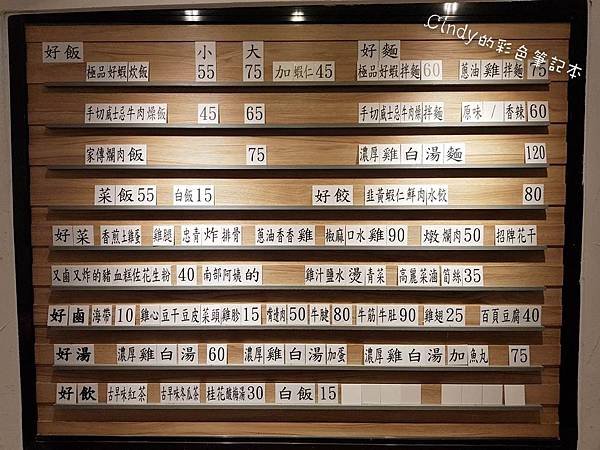 Cindy的彩色筆記本
好飯 小 大 好麵
極品好蝦炊飯 55 75 加蝦仁45 極品好蝦拌麵60 蔥油雞拌麵75
手切威士忌牛肉燥飯 45 65 手切威士忌牛肉燥拌麵 原味/香辣60
家傳爌肉飯 75 濃厚雞白湯麵 120
菜飯55 白飯15 好餃 韭黃蝦仁鮮肉水餃 80
好菜 香煎土雞蛋 雞腿 忠青炸排骨 蔥油香香雞 椒麻口水雞90 燉爌肉50 招牌花干
又鹵又炸的豬血糕佐花生粉 40 南部阿嬤的 雞汁鹽水燙青菜 高麗菜滷筍絲35
好鹵 海帶10 雞心豆干豆皮菜頭雞胗15 嘴邊肉50 牛腱80 牛筋牛肚90 雞翅25 百頁豆腐40
好湯 濃厚雞白湯60 濃厚雞白湯加蛋 濃厚雞白湯加魚丸 75
好飲 古早味紅茶 古早味冬瓜茶 桂花酸梅湯30 白飯15